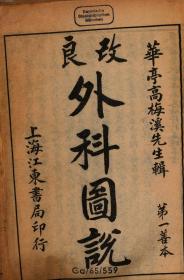 華亭高梅溪先生輯
第一善本
改良
外科圖說
上海江東書局印行
Ca/65/559